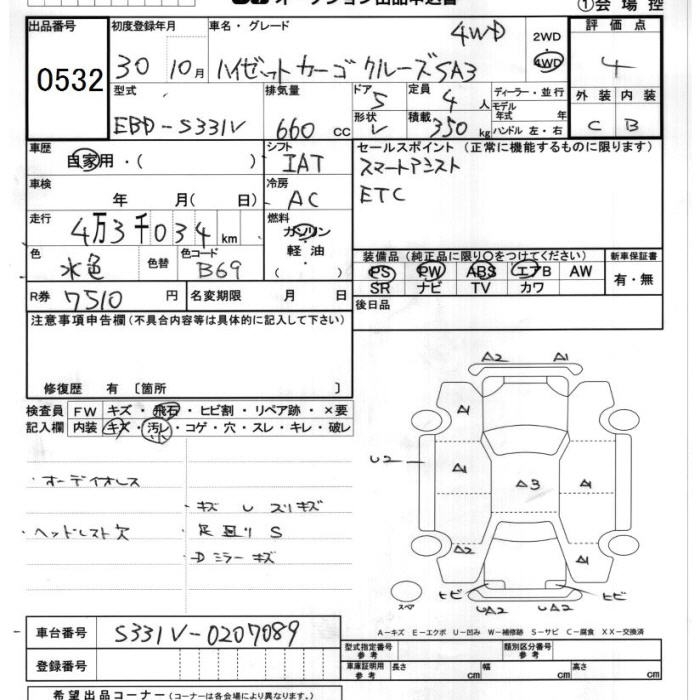 オークション出品申込書
①会場控
出品番号 0532
初度登録年月 30年 10月
車名・グレード 4WD ハイゼットカーゴ クルーズSA3
2WD・4WD
評価点 4
外装 C 内装 B
型式 EBD-S331V
排気量 660 cc
ドア 5 形状 V
定員 4 人
積載 350 kg
ディーラー・並行
モデル年式 年
ハンドル 左・右
車歴 自家用・( )
シフト IAT
セールスポイント (正常に機能するものに限ります)
スマートアシスト
ETC
車検 年 月( 日)
冷房 AC
走行 4万3千034 km
燃料 ガソリン 軽油・( )
色 水色 色替 色コード B69
装備品 (純正品に限り○をつけてください)
新車保証書
PS PW ABS エアB AW 有・無
SR ナビ TV カワ
R券 7510 円 名変期限 月 日
後日品
注意事項申告欄 (不具合内容等は具体的に記入して下さい)
修復歴 有 〔箇所 〕
検査員記入欄
FW キズ・飛石・ヒビ割・リペア跡・×要
内装 キズ・汚レ・コゲ・穴・スレ・キレ・破レ
小
・オーディオレス
・キズ U スリキズ
・ヘッドレスト欠
・足廻り S
・D ミラー キズ
A2 A1
A1
U2 A1 A3 A1
A2 A1
ヒビ ヒビ
UA2 UA2
スペア
A-キズ E-エクボ U-凹み W-補修跡 S-サビ C-腐食 XX-交換済
車台番号 S331V-0207089
登録番号
型式指定番号 参考
類別区分番号 参考
車庫証明用 参考 長さ cm 幅 cm 高さ cm
希望出品コーナー (コーナーは各会場により異なります。)